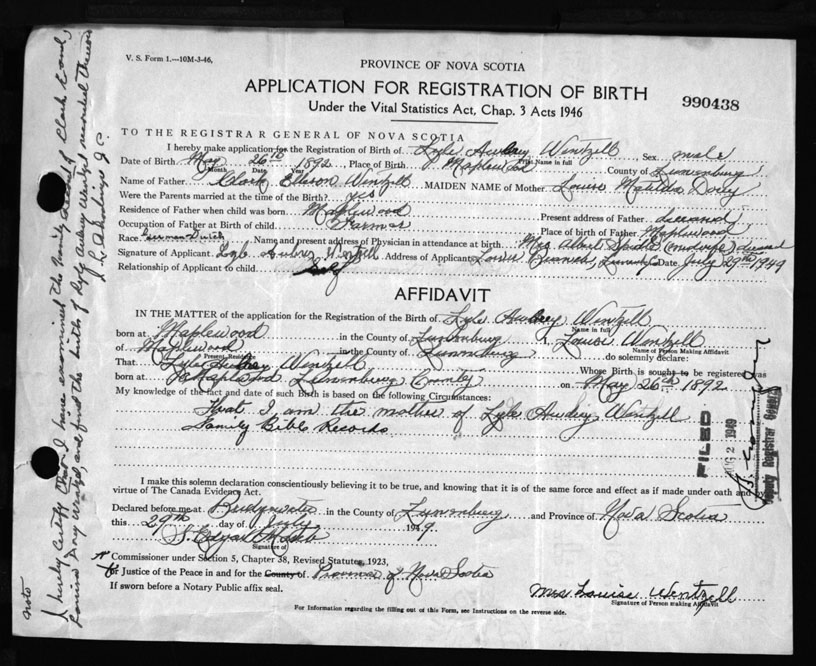 V. S. Form 1.—10M-3-46.
PROVINCE OF NOVA SCOTIA
APPLICATION FOR REGISTRATION OF BIRTH
990438
Under the Vital Statistics Act, Chap. 3 Acts 1946
TO THE REGISTRAR GENERAL OF NOVA SCOTIA
I hereby make application for the Registration of Birth of Lyle Awbrey Wintzell Sex male
Print Name in full
Date of Birth May 26th 1892 Place of Birth Maplewood County of Lunenburg
Month Date Year
Name of Father Clark Wintzell MAIDEN NAME of Mother Louise Matilda
Were the Parents married at the time of Birth? yes
Residence of Father when child was born Maplewood Present address of Father deceased
Occupation of Father at Birth of child Farmer Place of birth of Father Maplewood
Race Name and present address of Physician in attendance at birth Mrs Albert (midwife) deceased
Signature of Applicant Wintzell Address of Applicant Date July 29th 1949
Relationship of Applicant to child Self
AFFIDAVIT
IN THE MATTER of the application for the Registration of Birth of Lyle Awbrey Wintzell
Name in full
born at Maplewood in the County of Lunenburg I, Louise Wintzell
Name of Person Making Affidavit
of Maplewood in the County of Lunenburg do solemnly declare:
Present Residence
That Lyle Awbrey Wintzell Whose Birth is sought to be registered was
born at Maplewood Lunenburg County on May 26th 1892
My knowledge of the fact and date of such Birth is based on the following Circumstances:
That I am the mother of Lyle Awbrey Wintzell
Family Bible Records
FILED
AUG 2 1949
Deputy Registrar General
I make this solemn declaration conscientiously believing it to be true, and knowing that it is of same force and effect as if made under oath and by
virtue of The Canada Evidence Act.
Declared before me at Bridgewater in the County of Lunenburg and Province of Nova Scotia
this 29th day of July 1949.
Signature of
A Commissioner under Section 5, Chapter 38, Revised Statutes, 1923,
or Justice of the Peace in and for the County of Province of Nova Scotia
If sworn before a Notary Public affix seal.
Mrs Louise Wentzell
Signature of Person making Affidavit
For Information regarding the filling out of this Form, see Instructions on the reverse side.
Note
I hereby certify that I have examined the family record of Clark and
Louisa Wentzel, and find the birth of Lyle Aubrey Wentzel recorded therein